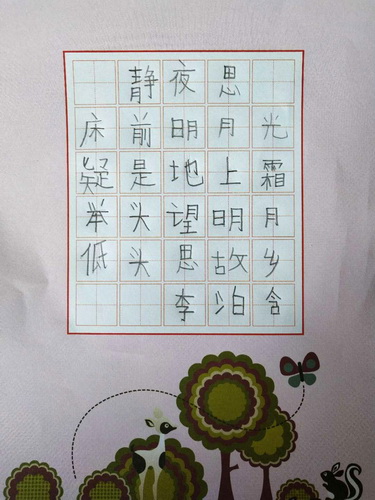 静夜思
床前明月光
疑是地上霜
举头望明月
低头思故乡
李泊含